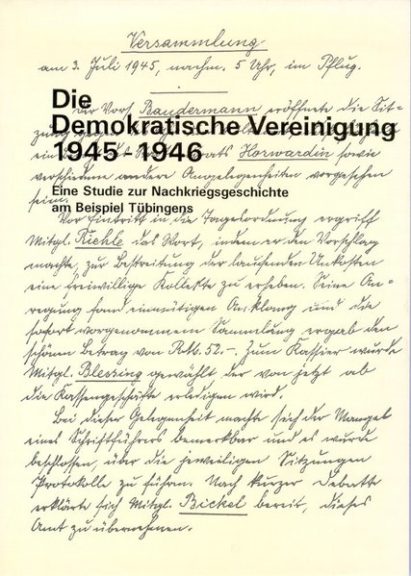 Versammlung
am 3. Juli 1945, nachm. 5 Uhr, im Pflug.
Der Vors. Baudermann eröffnete die Sit-
Die
Demokratische Vereinigung
1945-1946
Horwardin sowie
verschiedene andere Angelegenheiten vorgesehen
sein.
Eine Studie zur Nachkriegsgeschichte
am Beispiel Tübingens
Vor Eintritt in die Tagesordnung ergriff
Mitgl. Riehle das Wort, indem er den Vorschlag
machte, zur Bestreitung der laufenden Unkosten
eine freiwillige Kollekte zu erheben. Seine An-
regung fand einmütigen Anklang und die
sofort vorgenommene Sammlung ergab den
schönen Betrag von Rm. 52.-. Zum Kassier wurde
Mitgl. Blessing gewählt der von jetzt ab
die Kassengeschäfte erledigen wird.
Bei dieser Gelegenheit machte sich der Mangel
eines Schriftführers bemerkbar und es wurde
beschlossen, über die jeweiligen Sitzungen
Protokolle zu führen. Nach kurzer Debatte
erklärte sich Mitgl. Bickel bereit, dieses
Amt zu übernehmen.